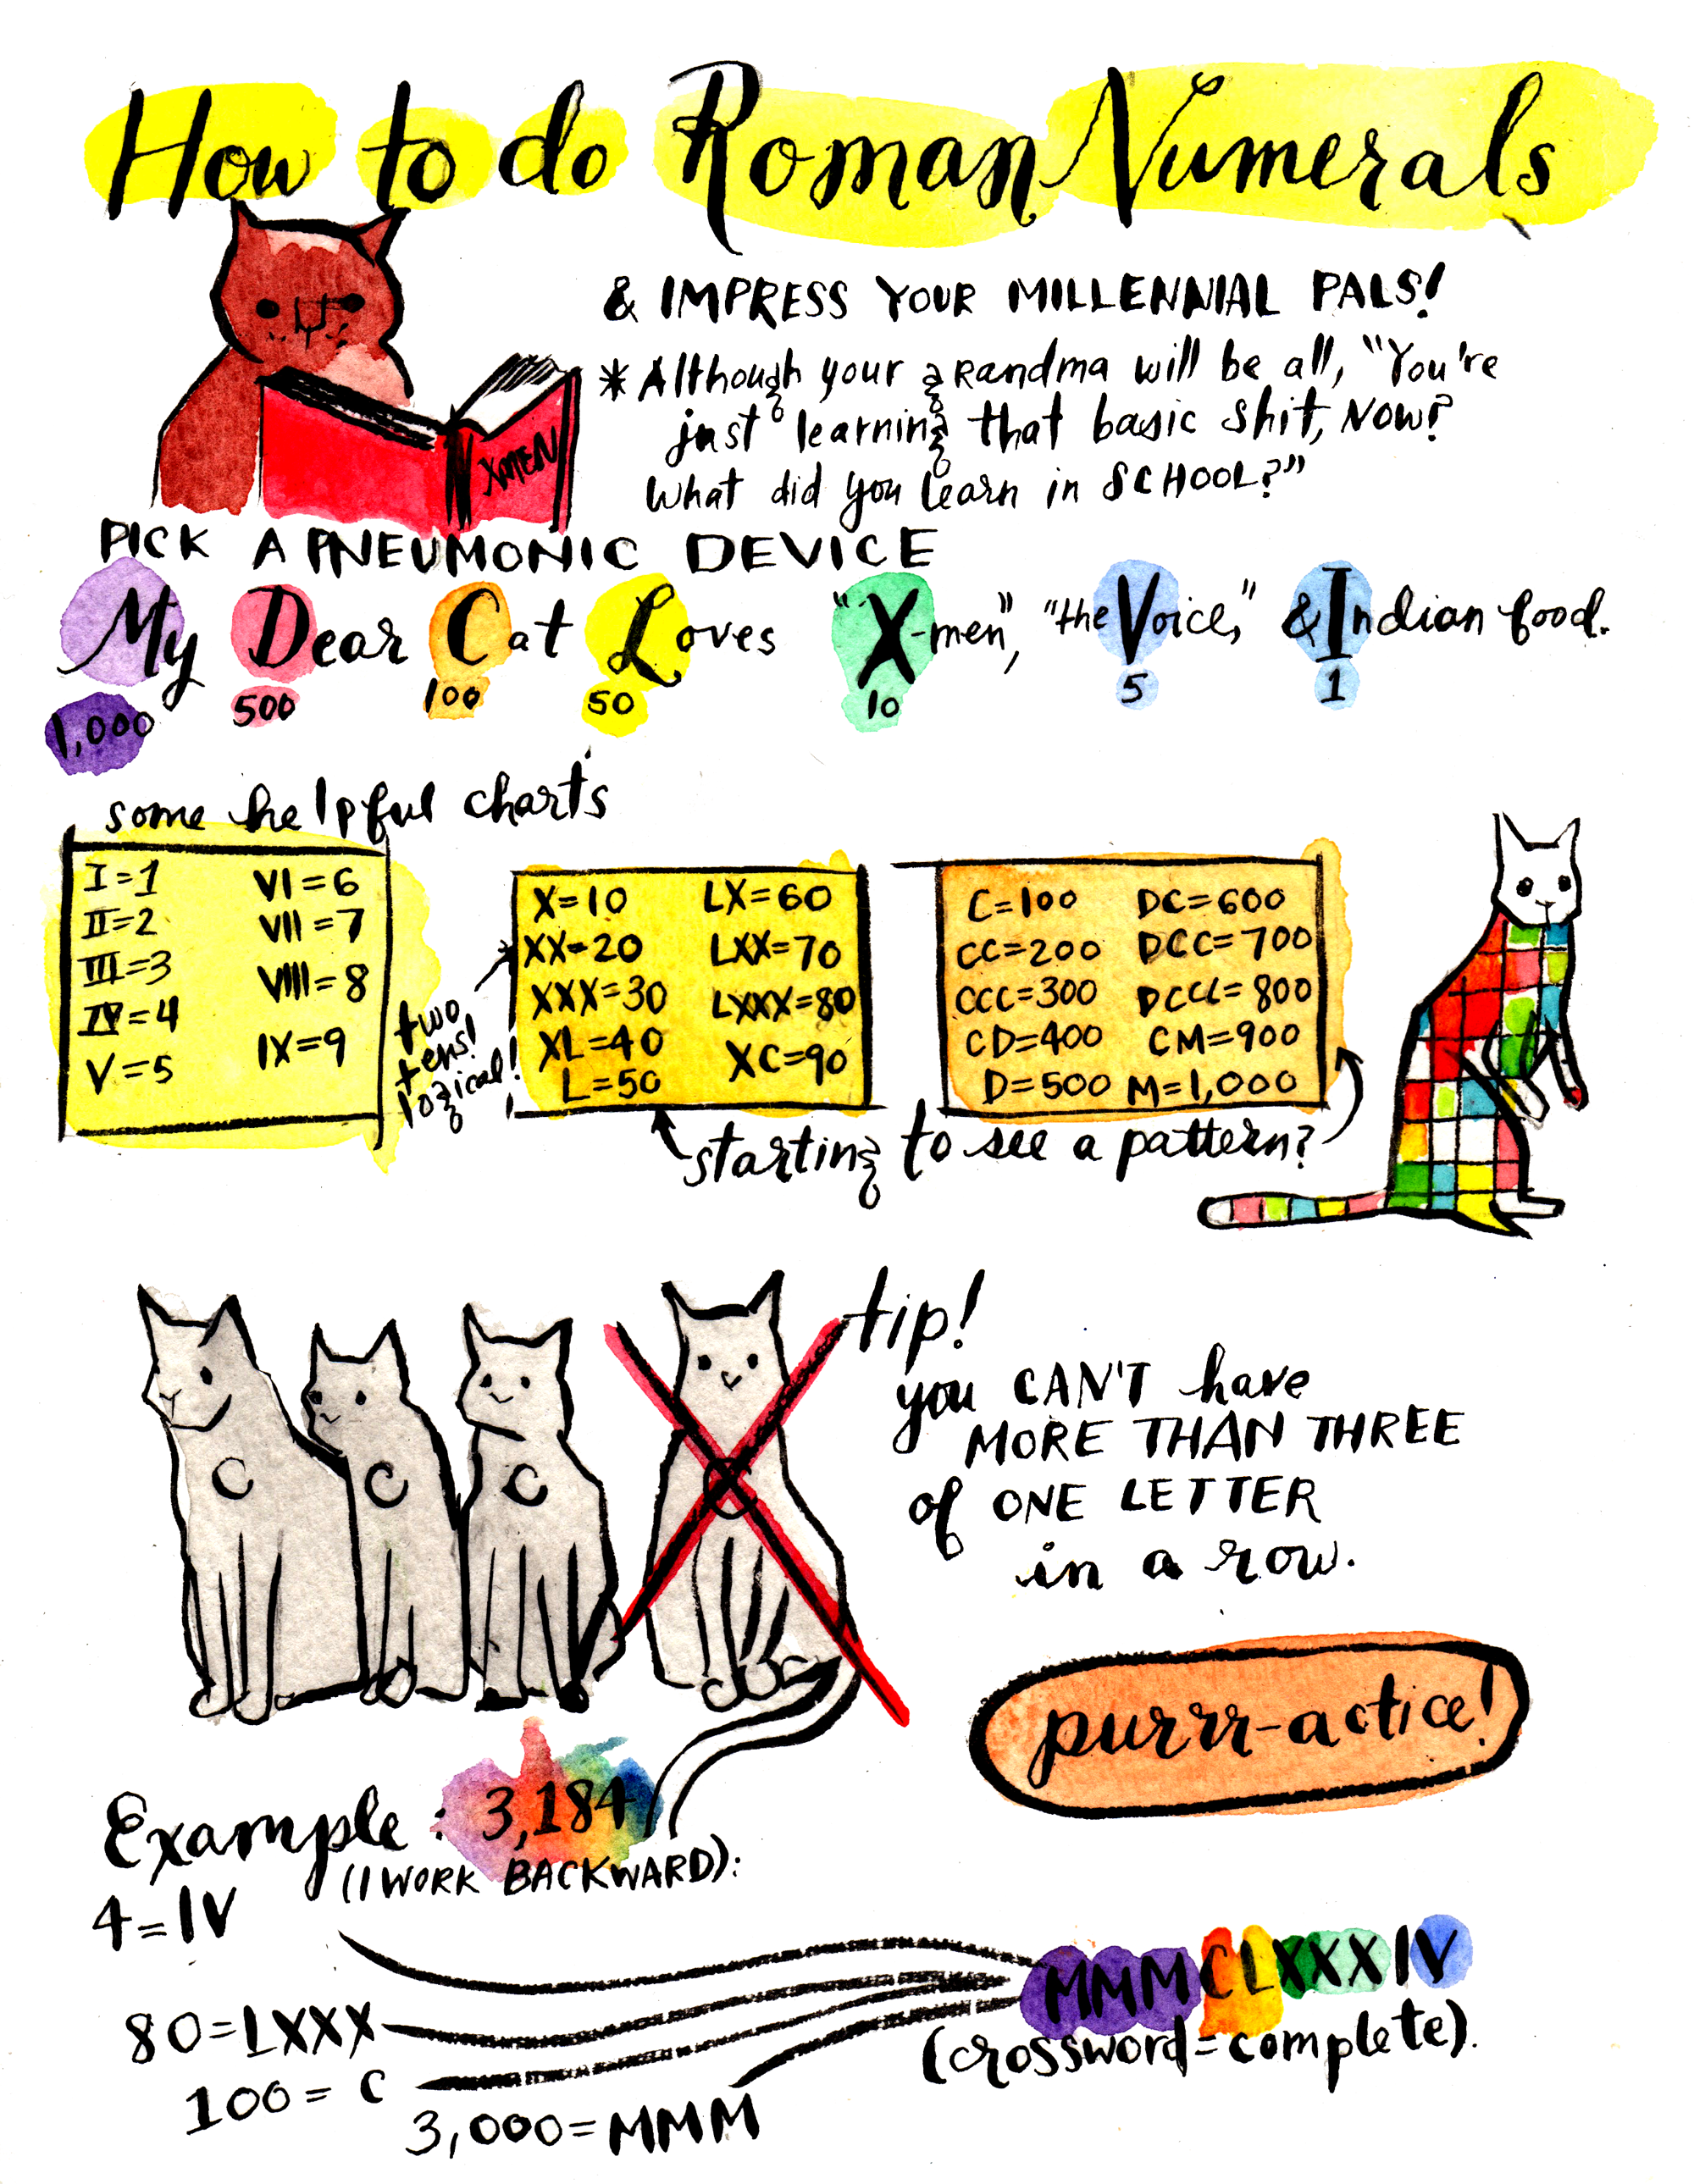 How to do Roman Numerals
& IMPRESS YOUR MILLENNIAL PALS!
*Although your grandma will be all, "You're
just learning that basic shit, NOW?
What did you learn in SCHOOL?"
XMEN
PICK A PNEUMONIC DEVICE
My Dear Cat Loves "X-men", "the Voice," & Indian food.
1,000 500 100 50 10 5 1
some helpful charts
I=1 VI=6
II=2 VII=7
III=3 VIII=8
IV=4 IX=9
V=5
two
tens!
logical!
X=10 LX=60
XX=20 LXX=70
XXX=30 LXXX=80
XL=40 XC=90
L=50
C=100 DC=600
CC=200 DCC=700
CCC=300 DCCC=800
CD=400 CM=900
D=500 M=1,000
starting to see a pattern?
C C C C
tip!
you CAN'T have
MORE THAN THREE
of ONE LETTER
in a row.
purrr-actice!
Example: 3,184
(I WORK BACKWARD):
4=IV
80=LXXX
100=C
3,000=MMM
MMMCLXXXIV
(crossword=complete).